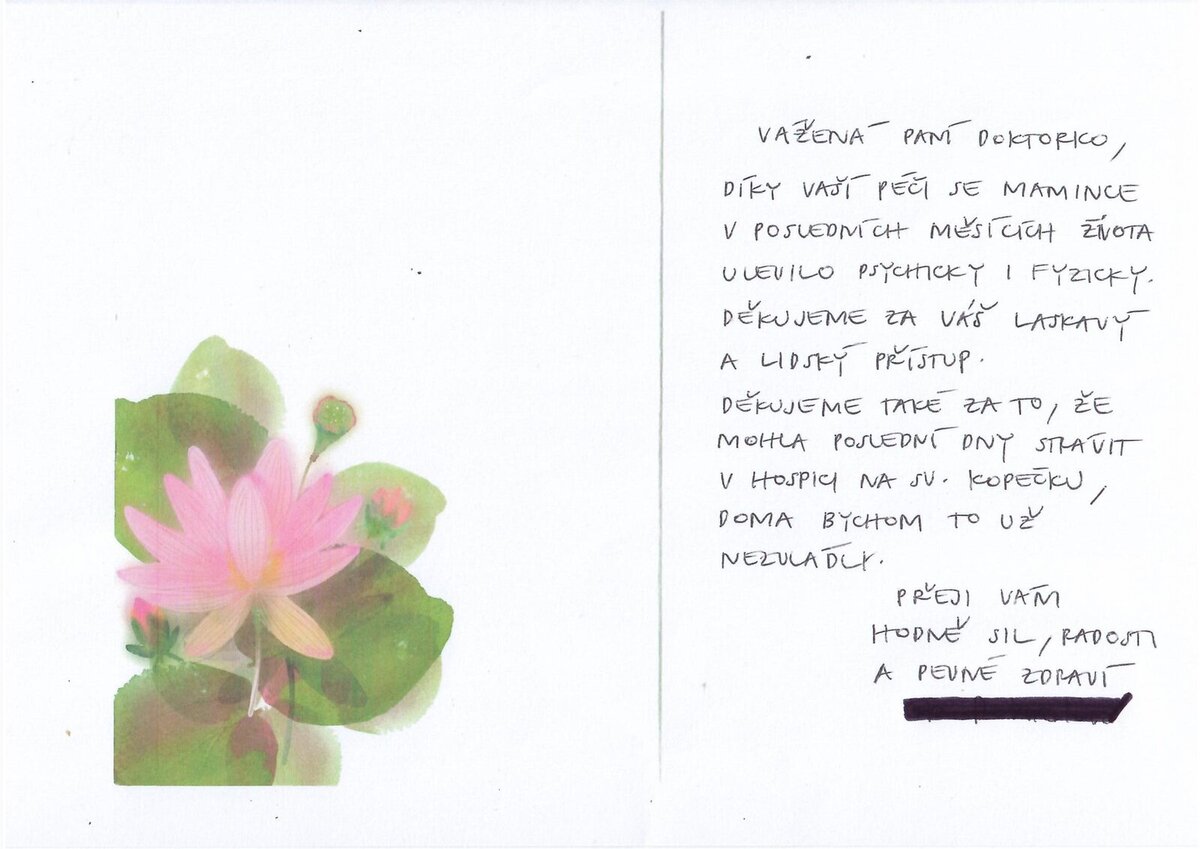 VÁŽENÁ PANÍ DOKTORKO,
DÍKY VAŠÍ PÉČI SE MAMINCE
V POSLEDNÍCH MĚSÍCÍCH ŽIVOTA
ULEVILO PSYCHICKY I FYZICKY.
DĚKUJEME ZA VÁŠ LASKAVÝ
A LIDSKÝ PŘÍSTUP.
DĚKUJEME TAKÉ ZA TO, ŽE
MOHLA POSLEDNÍ DNY STRÁVIT
V HOSPICI NA SV. KOPEČKU,
DOMA BYCHOM TO UŽ
NEZVLÁDLI.
PŘEJI VÁM
HODNĚ SIL, RADOSTI
A PEVNÉ ZDRAVÍ